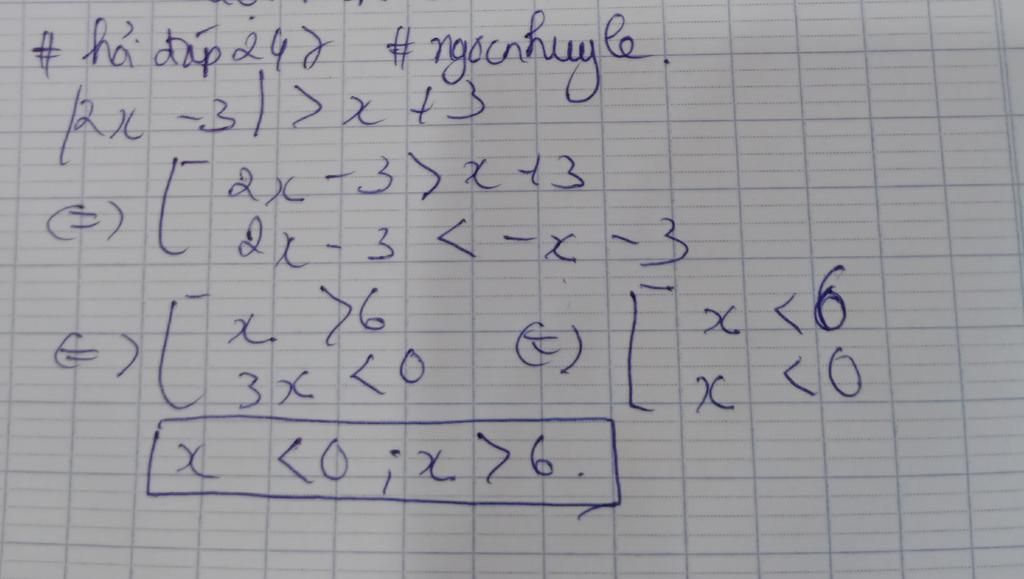 # hỏi đáp 247 # ngocnhuyle.
|2x - 3| > x + 3
⇔ [ 2x - 3 > x + 3
2x - 3 < -x - 3
⇔ [ x > 6 ⇔ [ x < 6
3x < 0 x < 0
x < 0 ; x > 6.